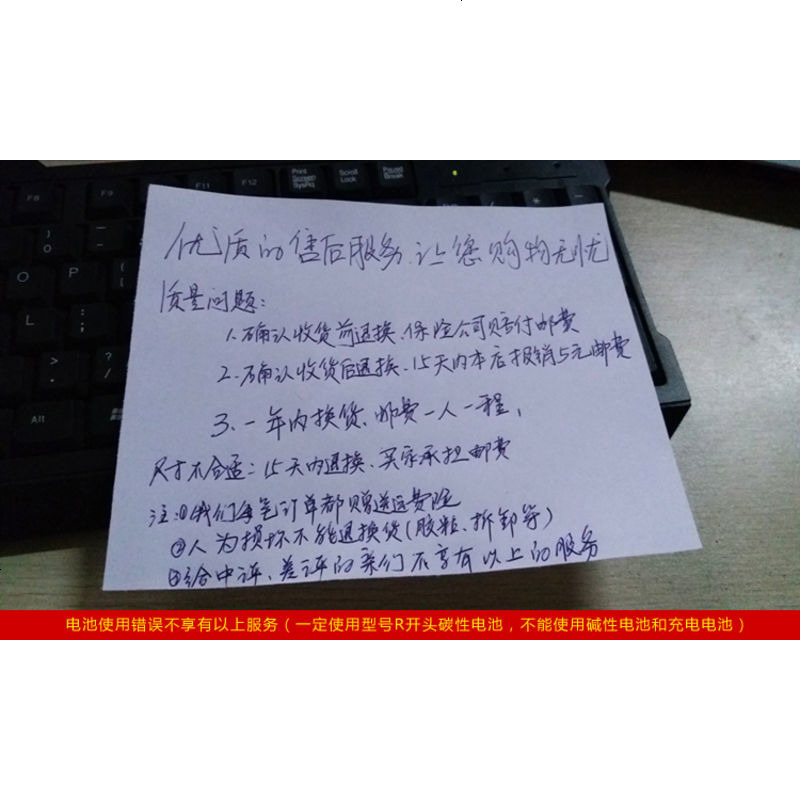 F8
F9
F11
F12
Print Screen SysRq
Scroll Lock
Pause Break
O
P
L
Alt
优质的售后服务.让您购物无忧
质量问题:
1.确认收货前退换、保险公司赔付邮费
2.确认收货后退换、15天内本店报销5元邮费
3.一年内换货、邮费一人一程,
尺寸不合适:15天内退换、买家承担邮费
注:①我们每笔订单都赠送运费险
②人为损坏不能退换货(胶粘、拆卸等)
③给中评、差评的亲们不享有以上的服务
电池使用错误不享有以上服务(一定使用型号R开头碳性电池,不能使用碱性电池和充电电池)